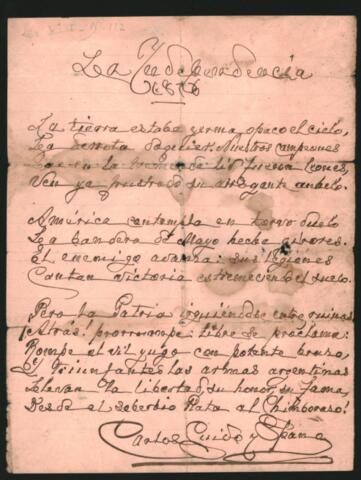 La Independencia
1816
La tierra estaba yerma, opaco el cielo,
La derrota doquier. Nuestros campeones
Que en la tremenda lid fueron leones,
Ven ya frustrado su arrogante anhelo.
América contempla en torvo duelo
La bandera de Mayo hecha girones.
El enemigo avanza: sus legiones
Cantan victoria estremeciendo el suelo.
Pero la Patria irguiéndose entre ruinas
¡Atrás! prorrumpe: libre se proclama:
Rompe el vil yugo con potente brazo,
Y triunfantes las armas argentinas
Llevan la libertad, su honor, su fama,
Desde el soberbio Plata al Chimborazo!
Carlos Guido y Spano